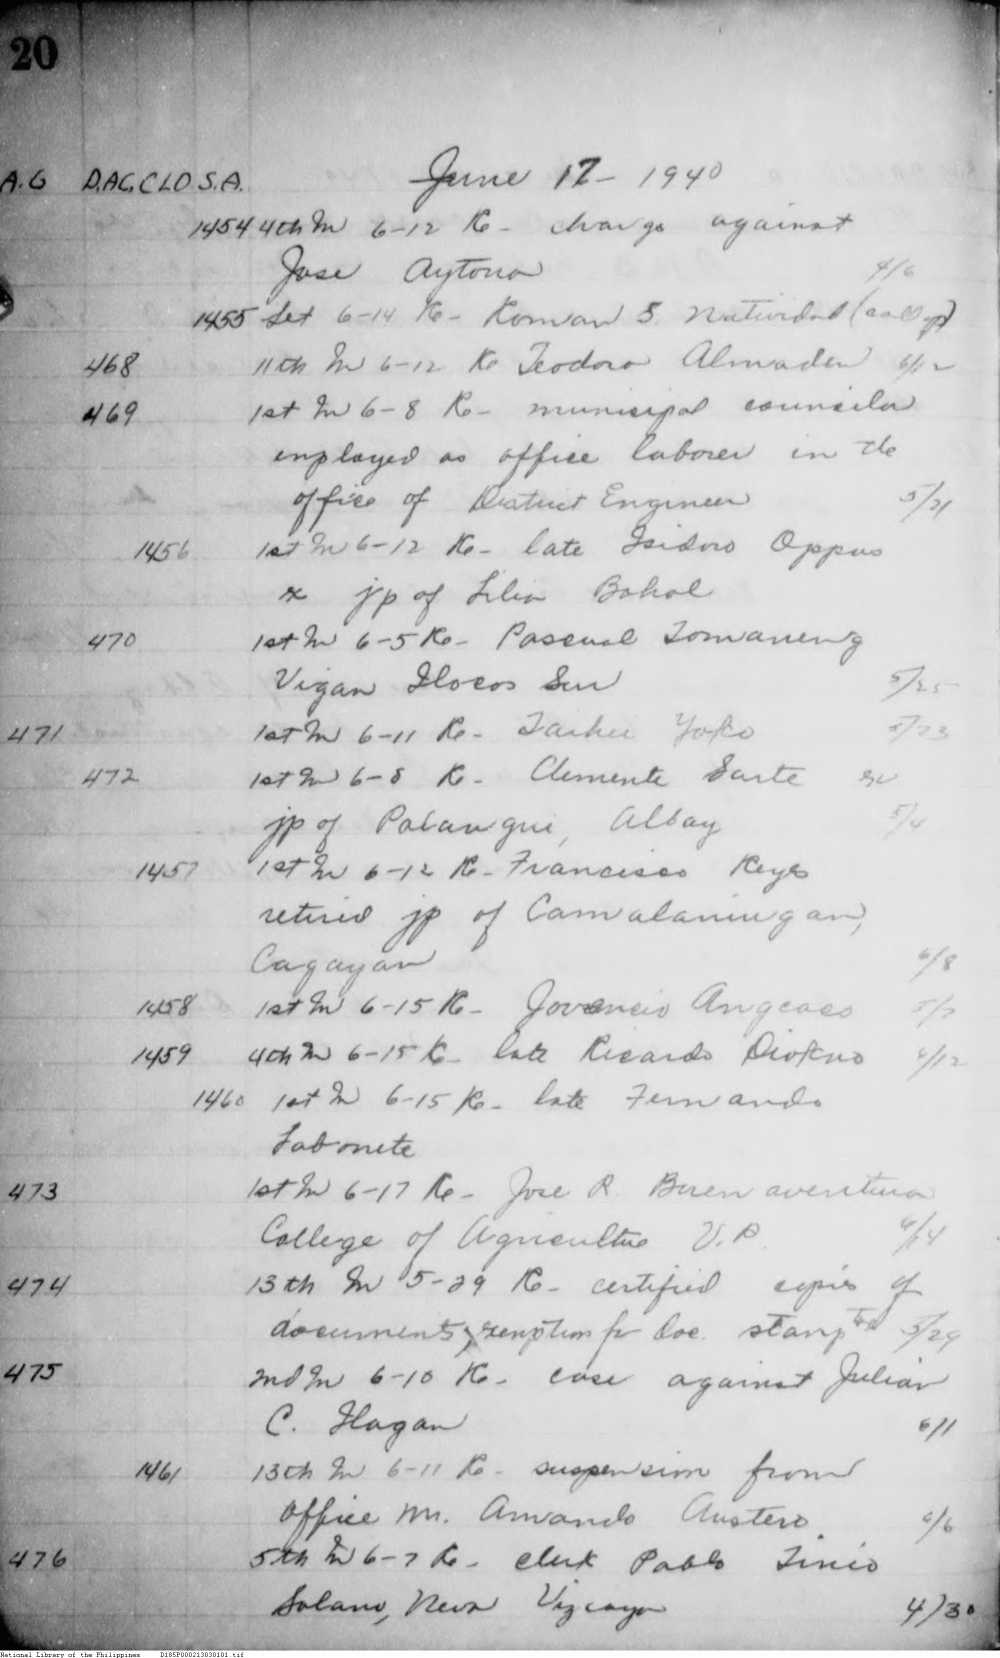 20
A.G D.A.G. CLO S.A. June 17 - 1940
1454 4th In 6-12 Re- charge against
Jose Aytona 4/6
1455 Let 6-14 Re- Roman S. Natividad (call up)
468 11th In 6-12 Re Teodoro Almaden 6/12
469 1st In 6-8 Re- municipal councilor
employed as office laborer in the
office of District Engineer 5/21
1456 1st In 6-12 Re- late Isidoro Oppus
jp of Lila Bohol
470 1st In 6-5 Re- Pascual Tomaneng
Vigan Ilocos Sur 5/25
471 1st In 6-11 Re- Yoko 5/23
472 1st In 6-8 Re- Clemente Sarte
jp of Polangui, Albay 5/4
1457 1st In 6-12 Re- Francisco Reyes
retired jp of Camalaniugan,
Cagayan 6/8
1458 1st In 6-15 Re- Jovencio Angcaco
1459 4th In 6-15 Re- late Ricardo Diokno 6/12
1460 1st In 6-15 Re- late Fernando
Labonete
473 1st In 6-17 Re- Jose R. Buenaventura
College of Agriculture U.P. 6/14
474 13th In 5-29 Re- certified copies of
documents, exemption fr Doc. stamp tax 5/29
475 2nd In 6-10 Re- case against Julian
C. Ilagan 6/1
1461 13th In 6-11 Re- suspension from
office Mr. Amando Austero. 6/6
476 5th In 6-7 Re- clerk Pablo Tinio
Solano, Neva Vizcaya 4/30
National Library of the Philippines D185P000213030101.tif